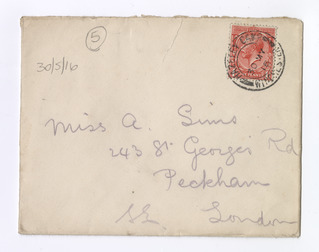 5
30/5/16
Miss A. Sims
243 St. Georges Rd
Peckham
S.E. London